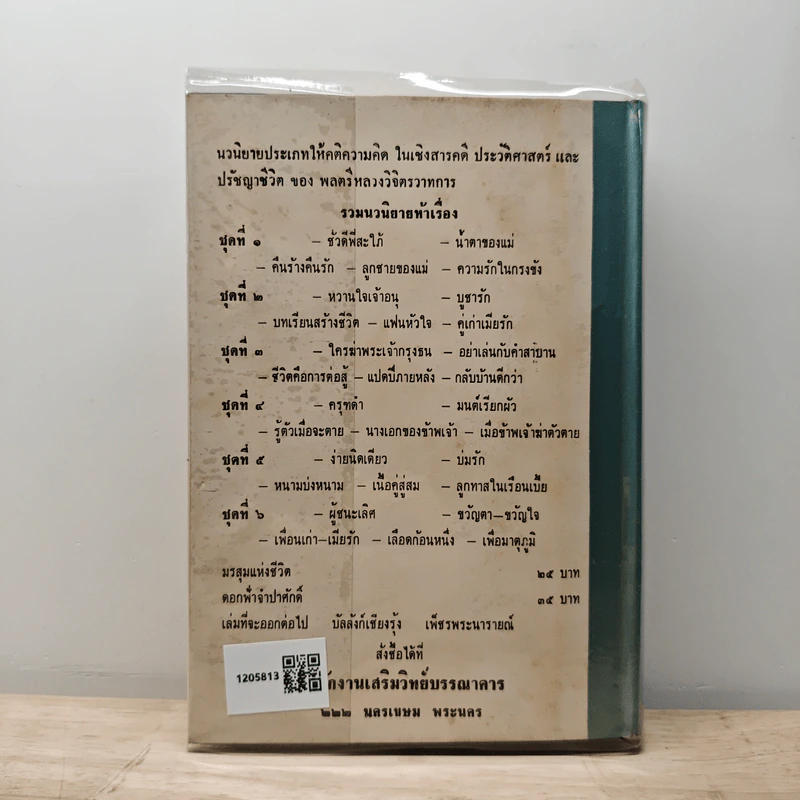 นวนิยายประเภทให้คติความคิด ในเชิงสารคดี ประวัติศาสตร์ และ
ปรัชญาชีวิต ของ พลตรีหลวงวิจิตรวาทการ
รวมนวนิยายห้าเรื่อง
ชุดที่ ๑ – ชั่วดีพี่สะใภ้ – น้ำตาของแม่
– คืนร้างคืนรัก – ลูกชายของแม่ – ความรักในกรงขัง
ชุดที่ ๒ – หวานใจเจ้าอนุ – บูชารัก
– บทเรียนสร้างชีวิต – แฟนหัวใจ – คู่เก่าเมียรัก
ชุดที่ ๓ – ใครฆ่าพระเจ้ากรุงธน – อย่าเล่นกับคำสาบาน
– ชีวิตคือการต่อสู้ – แปดปีภายหลัง – กลับบ้านดีกว่า
ชุดที่ ๔ – ครุฑดำ – มนต์เรียกผัว
– รู้ตัวเมื่อจะตาย – นางเอกของข้าพเจ้า – เมื่อข้าพเจ้าฆ่าตัวตาย
ชุดที่ ๕ – ง่ายนิดเดียว – บ่มรัก
– หนามบ่งหนาม – เนื้อคู่สู่สม – ลูกทาสในเรือนเบี้ย
ชุดที่ ๖ – ผู้ชนะเลิศ – ขวัญตา–ขวัญใจ
– เพื่อนเก่า–เมียรัก – เลือดก้อนหนึ่ง – เพื่อมาตุภูมิ
มรสุมแห่งชีวิต ๒๕ บาท
ดอกฟ้าจำปาศักดิ์ ๓๕ บาท
เล่มที่จะออกต่อไป บัลลังก์เชียงรุ้ง เพ็ชรพระนารายณ์
สั่งซื้อได้ที่
1205813
งานเสริมวิทย์บรรณาคาร
๒๒๒ นครเขษม พระนคร